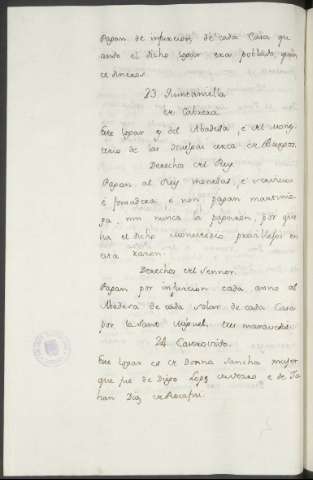 Pagan de infurcion, de cada Casa qu
ando el dicho logar era poblado,
ce dineros.
23 Quintaniella
de Cabrera
Este logar es del Abadesa, e del Mong
terio de las Duegas cerca de Burgos.
Derechos del Rey
Pagan al Rey monedas, e servicios
e fonsadera e non pagan martinie
ga, nin nunca la pagaron, por que
ha el dicho Monesterio previllejo en
esta razon.
Derechos del Sennor.
Pagan por infurcion cada anno al
Abadesa de cada solar de cada Casa
por Sant Miguel, tres maravedis.
24
Este logar es de Donna Sancha muger
que fue de Diego Lopez e de Jo
han Diaz de Rocafui.